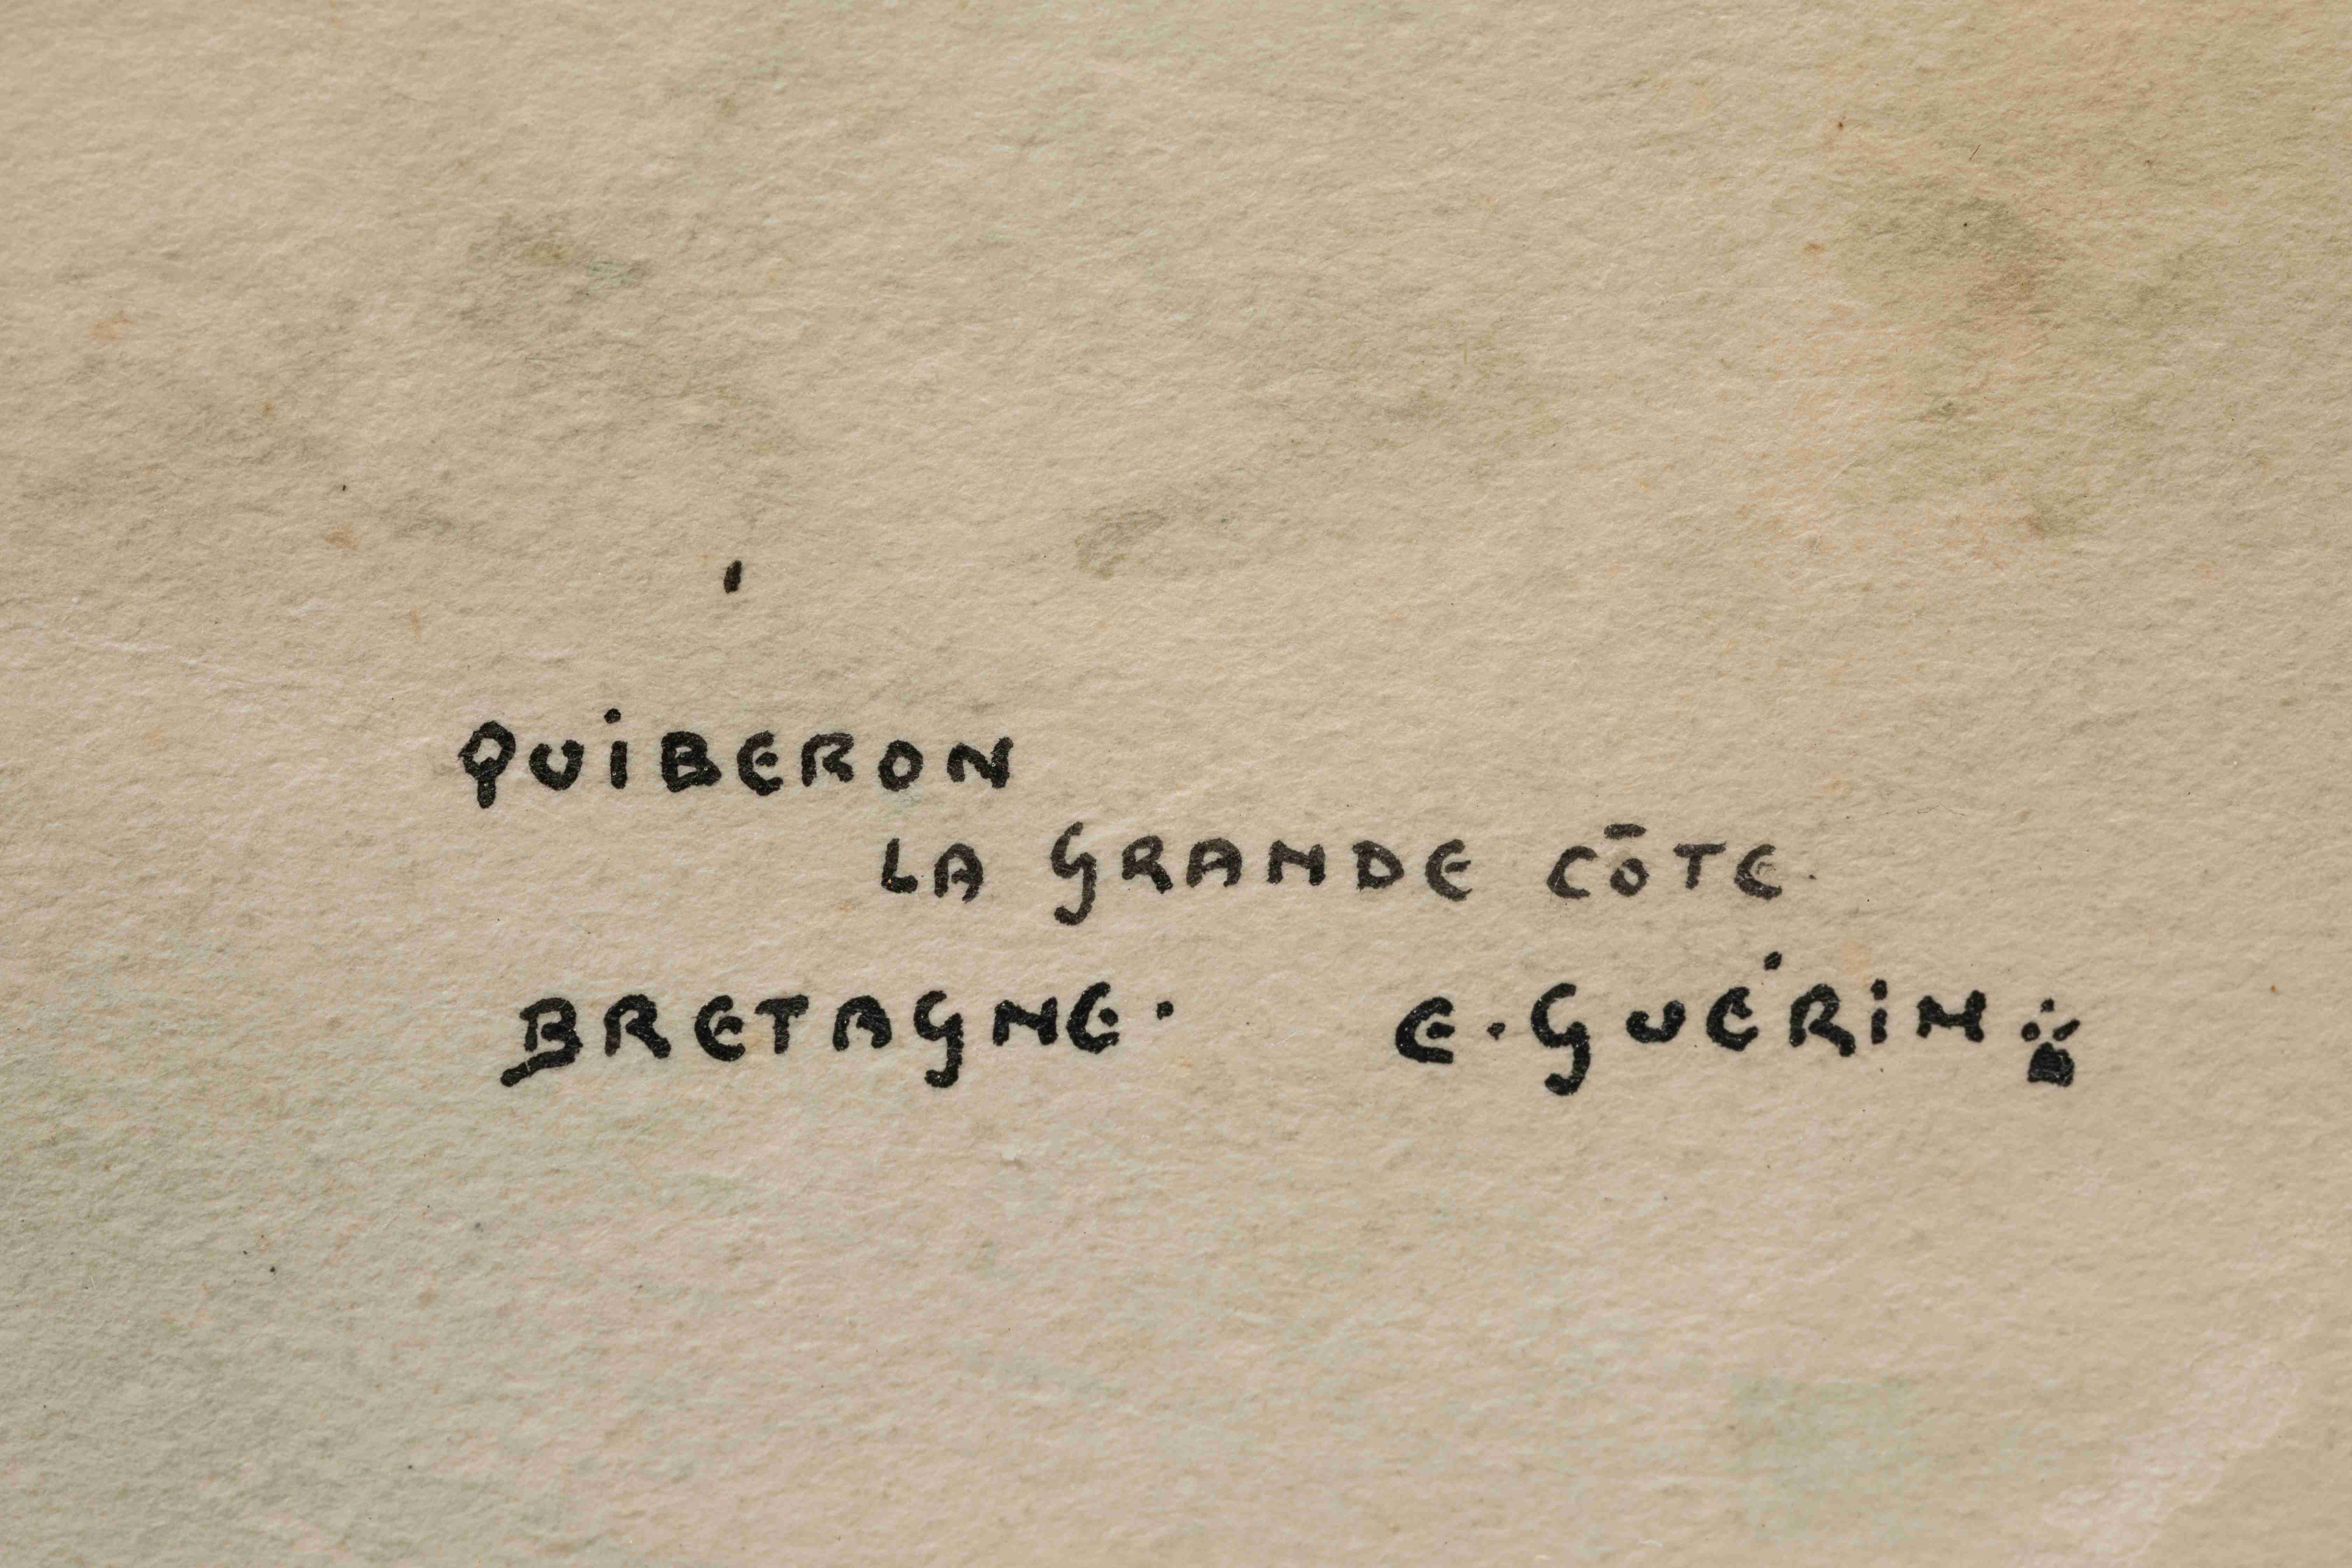 QUIBERON
LA GRANDE CŌTE.
BRETAGNE. E. GUÉRIN